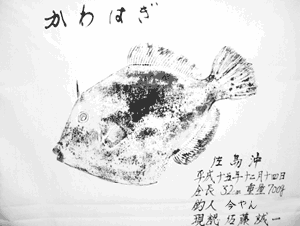 かわはぎ
佐島沖
平成十五年十二月十四日
全長 32㎝ 重量 700g
釣人 今やん
現認 佐藤誠一